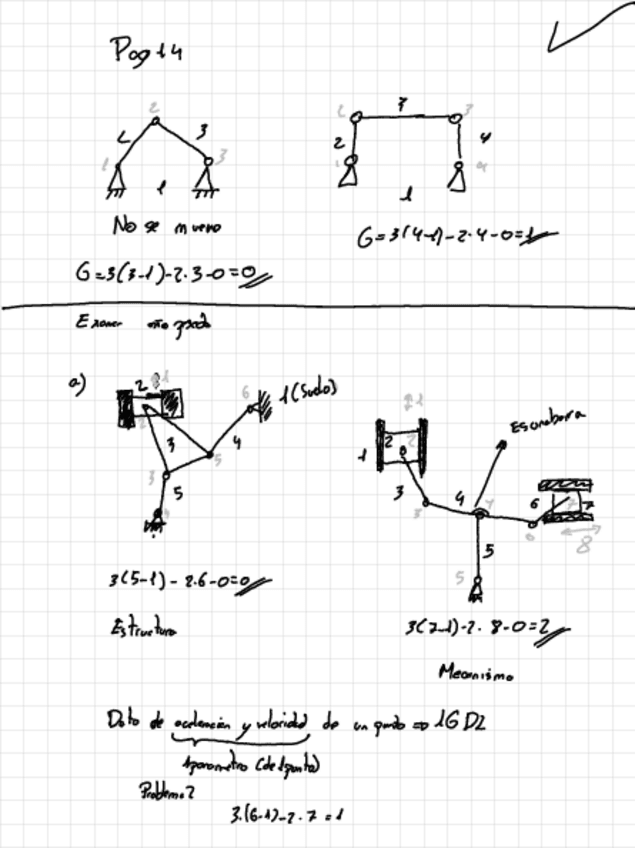 Pag 14
2
2 3
1 3
1
No se mueve
G=3(3-1)-2·3-0=0
3
2 3
2 4
1 4
1
G=3(4-1)-2·4-0=1
Examen año pasado
a)
2 1
6
1 (Suelo)
3 4
3 5
5
3(5-1)-2·6-0=0
Estructura
1 2 2
3
3 4
5
5
Escombrera
6 7
8
3(7-1)-2·8-0=2
Mecanismo
Dato de aceleración y velocidad de un punto => 1GDL
1 parametro (de 1 punto)
Problema 2
3·(6-1)-2·7=1